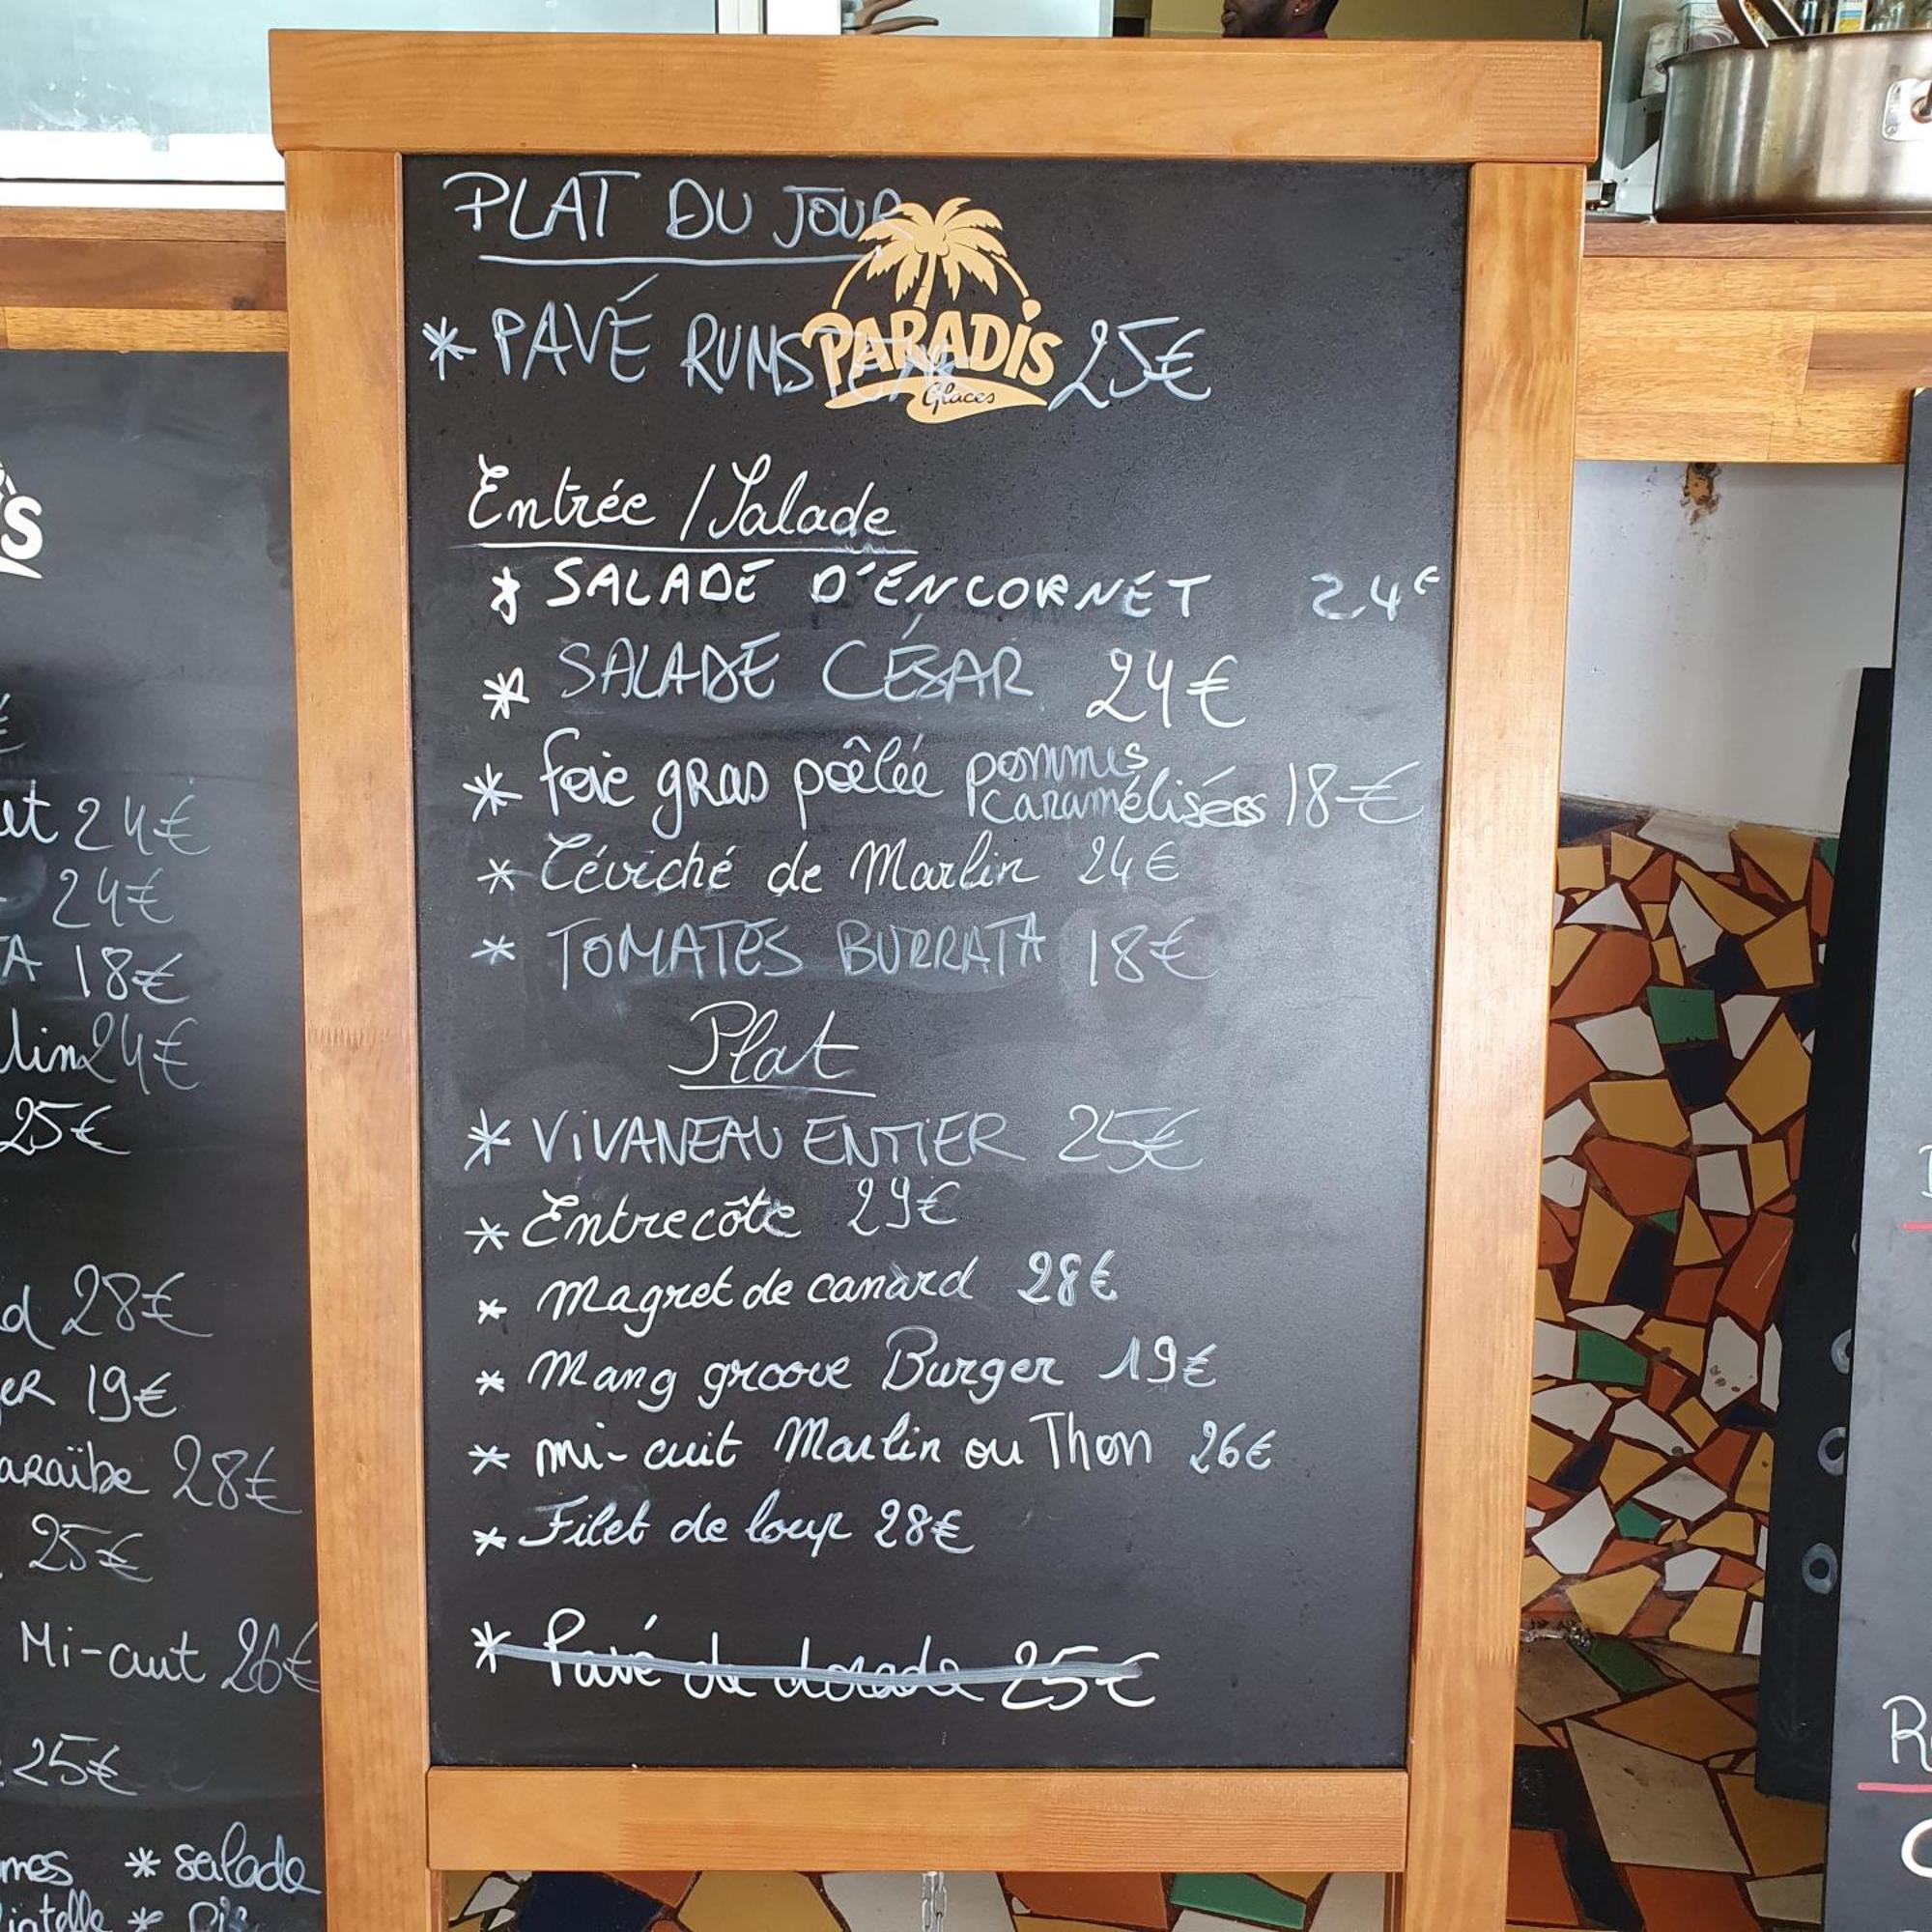 PLAT DU JOUR
* PAVÉ RUMSTEAK 25€
PARADIS
Glaces
Entrée / Salade
* SALADE D'ENCORNET 24€
* SALADE CÉSAR 24€
* foie gras poêlée pommes caramélisées 18€
* Céviché de Marlin 24€
* TOMATES BURRATA 18€
Plat
* VIVANEAU ENTIER 25€
* Entrecôte 29€
* Magret de canard 28€
* Mang groove Burger 19€
* mi-cuit Marlin ou Thon 26€
* Filet de loup 28€
* Pavé de dorade 25€
24€
24€
18€
24€
25€
28€
19€
28€
25€
Mi-cuit 26€
25€
* salade